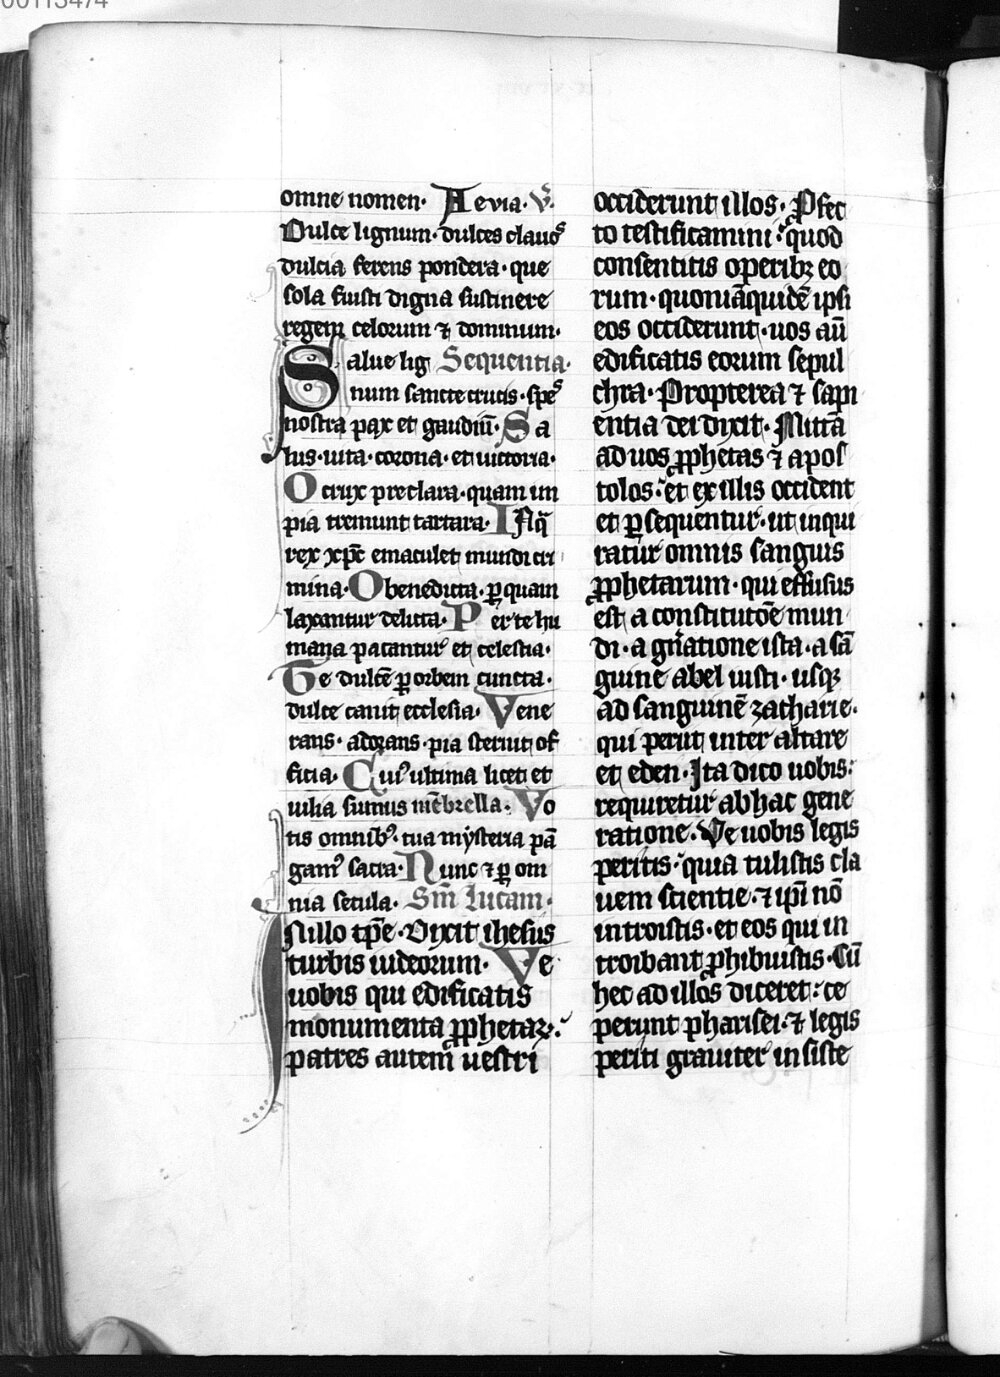 00113474
omne nomen· Aevia· V̉·
Dulce lignum· dulces clauoˢ
dulcia ferens pondera· que
sola fuisti digna sustinere
regem celorum ⁊ dominum·
Salue lig Sequentia·
num sancte crucis· speˢ
nostra pax et gaudiū· Sa
lus· uita· corona· et uictoria·
O crux preclara· quam im
pia tremunt tartara· In q̄
rex xp̄c emaculet mundi cri
mina· O benedicta· ꝑ quam
laxantur delicta· Per te hu
mana pacantur et celestia·
Te dulcē ꝑ orbem cuncta·
dulce canit ecclesia· Vene
rans· adorans· pia sternit of
ficia· Cuiꝰ ultima licet et
uilia sumus mēbrella· Vo
tis omnibꝰ· tua mysteria pā
gamꝰ sacra· Nunc ⁊ ꝑ om
nia secula· Sm̄ Lucam·
In illo tp̄e· Dixit ihesus
turbis iudeorum· Ve
uobis qui edificatis
monumenta ꝓphetaꝝ·
patres autem uestri
occiderunt illos· Ꝓfec
to testificamini· quod
consentitis operibꝫ eo
rum· quoniā quidē ipsi
eos occiderunt· uos aū
edificatis eorum sepul
chra· Propterea ⁊ sapi
entia dei dixit· Mittā
ad uos ꝓphetas ⁊ apos
tolos· et ex illis occident
et ꝑsequentur· ut inqui
ratur omnis sanguis
ꝓphetarum· qui effusus
est a constitutōe mun
di· a gn̄atione ista· a sā
guine abel iusti· usqꝫ
ad sanguinē zacharie·
qui periit inter altare
et edem· Ita dico uobis·
requiretur ab hac gene
ratione· Ve uobis legis
peritis· quia tulistis cla
uem scientie· ⁊ ip̄i nō
introistis· et eos qui in
troibant ꝓhibuistis· Cū
hec ad illos diceret· ce
perunt pharisei· ⁊ legis
periti grauiter insiste